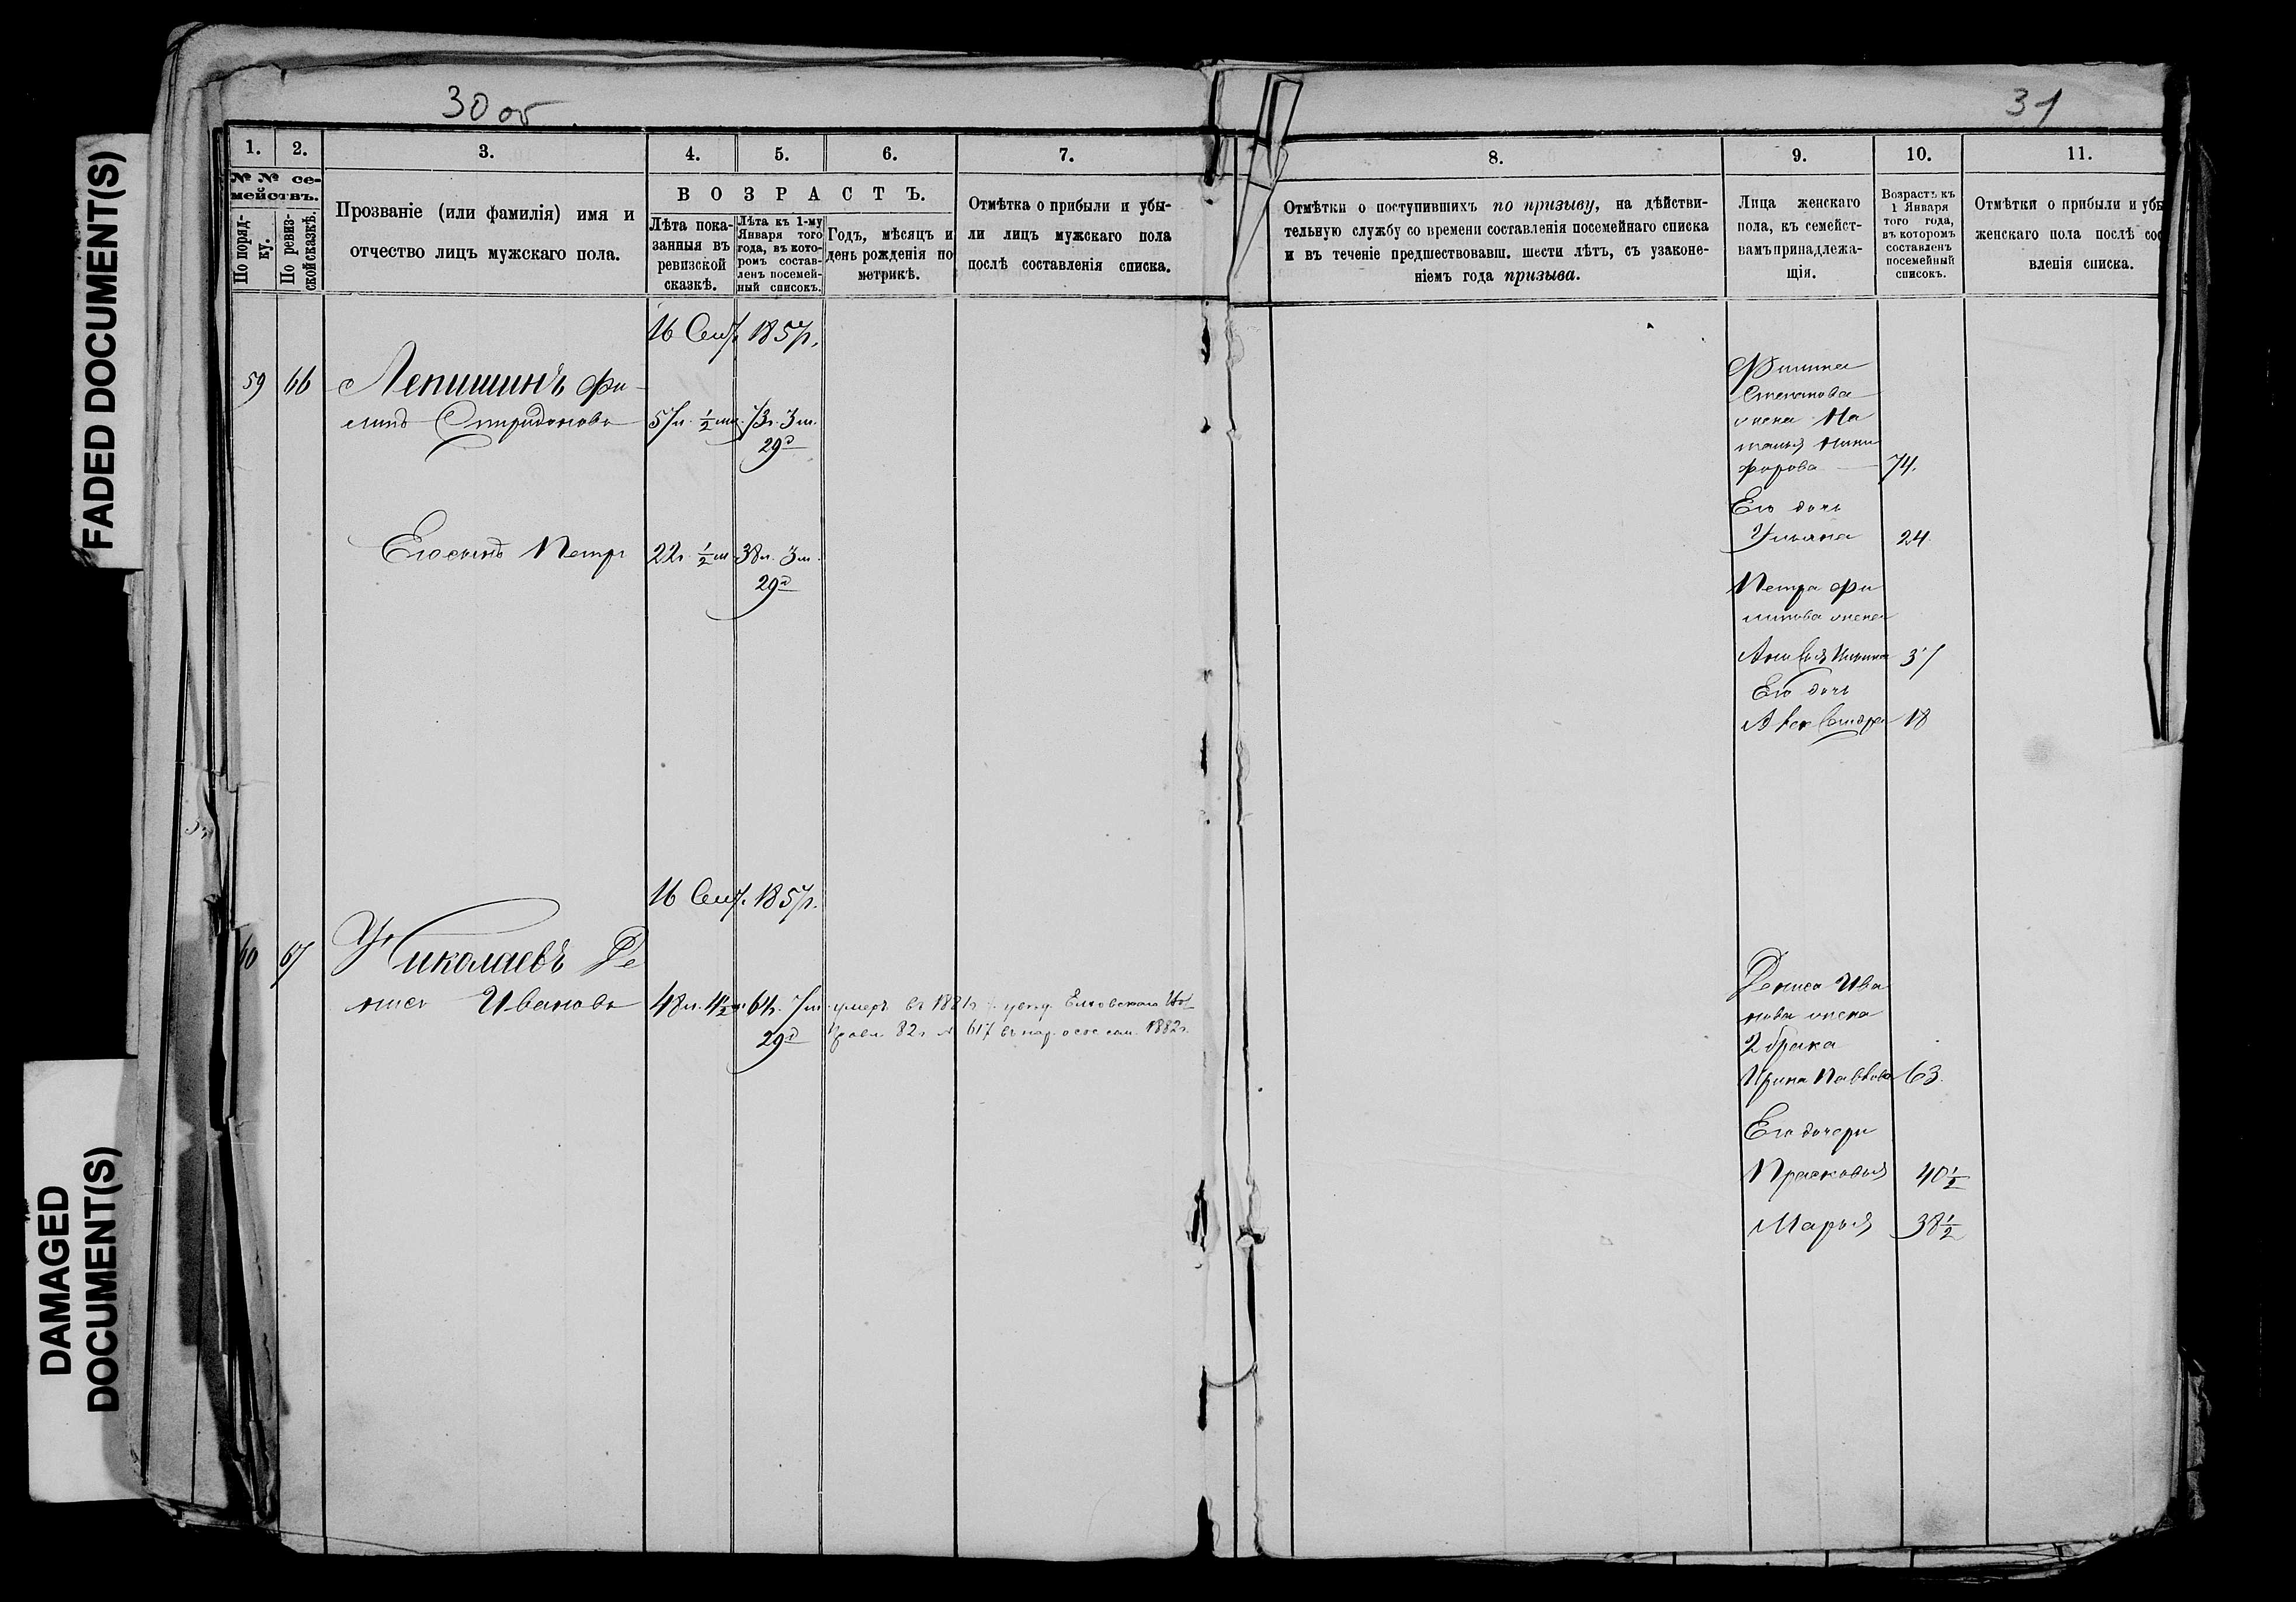 FADED DOCUMENT(S)
DAMAGED
DOCUMENT(S)
30 об
1. 2. 3. 4. 5. 6. 7.
№ № се-
мействъ.
По поряд-
ку.
По ревиз-
ской сказкѣ.
Прозваніе (или фамилія) имя и
отчество лицъ мужскаго пола.
ВОЗРАСТЪ.
Лѣта пока-
занныя въ
ревизской
сказкѣ.
Лѣта къ 1-му
Января того
года, въ кото-
ромъ состав-
ленъ посемей-
ный списокъ.
Годъ, мѣсяцъ и
день рожденія по
метрикѣ.
Отмѣтка о прибыли и убы-
ли лицъ мужскаго пола
послѣ составленія списка.
16 Сент. 1857г.
59 66 Лепишинъ Фи-
липъ Спиридоновъ 57л. ½ м. 73г. 3м.
29д
Его сынъ Петръ 22г. ½ м 38л. 3м.
29д
16 Сент. 1857г.
60 67 Николаевъ Де
нисъ Ивановъ 48л. 4½ м. 64г. 7м
29д
умеръ въ 1881г.
82г № 617 1882г.
31
8. 9. 10. 11.
Отмѣтки о поступившихъ по призыву, на дѣйстви-
тельную службу со времени составленія посемейнаго списка
и въ теченіе предшествовавш. шести лѣтъ, съ узаконе-
ніемъ года призыва.
Лица женскаго
пола, къ семейст-
вамъ принадлежа-
щія.
Возрастъ къ
1 Января
того года,
въ которомъ
составленъ
посемейный
списокъ.
Отмѣтки о прибыли и убы
женскаго пола послѣ сос
вленія списка.
Филипа
жена На
талья Ники
форова 74.
Его дочь
Ульяна 24.
Петра Фи
липова жена
Ильина 37
Его дочь
Александра 18
Дениса Ива
нова жена
2 брака
Ирина Павлова 63.
Его дочери
Прасковья 40½
Марья 38½